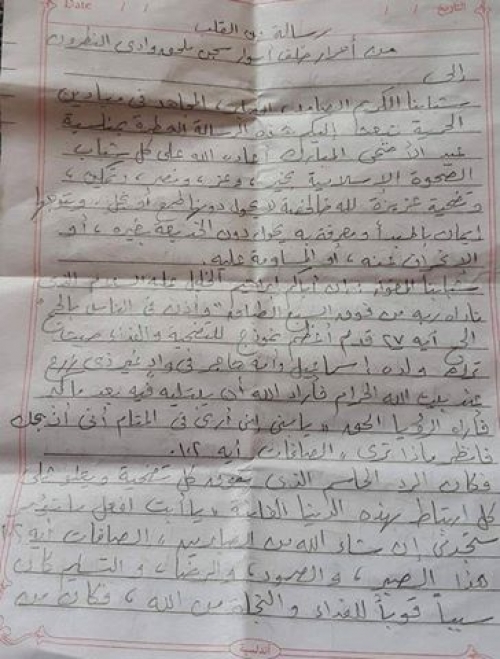 Date / /
التاريخ / /
رسالة من القلب
من أحرار خلف أسوار سجن ملحق وادى النطرون
إلى
شبابنا الكريم الصامد، المجاهد فى ميادين
الحرية نبعث إليكم هذه الرسالة العطرة بمناسبة
عيد الأضحى المبارك أعاده الله على كل شباب
الصحوة الإسلامية بخير، وعز، ونصر، وتمكين،
وتضحية عزيزة لله خالصة لا يحول دونها طمع أو بخل.. ويتوجها
إيمان بالمبدأ ومعرفة به يحول دون الخديعة بغيره، أو
الإنحراف عنه، أو المساومة عليه.
شبابنا إن أباكم إبراهيم الخليل عليه السلام الذى
ناداه ربه من فوق السبع الطباق "وأذن فى الناس بالحج"
الحج آيه ٢٧ قدم أعظم نموذج للتضحية والفداء
ترك ولده إسماعيل وأمه هاجر فى وادٍ غير ذى زرع
عند بيت الله الحرام فأراد الله أن يبتليه فيه بعد ما كبر
فأراه الرؤيا الحق "يا بنى إنى أرى فى المنام أنى أذبحك
فانظر ماذا ترى" الصافات آيه ١٠٢
وكان الرد الحاسم الذى يفوق كل تضحية ويعلو على
كل ارتباط بهذه الدنيا الفانية "يا أبت افعل ما تؤمر
ستجدنى إن شاء الله من الصابرين" الصافات آية ١٠٢
هذا الصبر، والصمود، والرضا، والتسليم كان
سبباً قوياً للفداء والنجاة من الله، فكان من
أندلسية